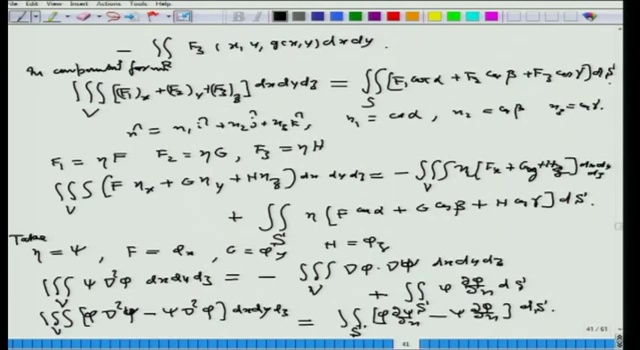 File Edit View Insert Actions Tools Help
− ∬_R F₃(x, y, g(x,y)) dx dy.
In component form
∭_V [(F₁)_x + (F₂)_y + (F₃)_z] dx dy dz = ∬_S [F₁ cos α + F₂ cos β + F₃ cos γ] dS.
n̂ = n₁ î + n₂ ĵ + n₃ k̂, n₁ = cos α, n₂ = cos β n₃ = cos γ.
F₁ = ηF F₂ = ηG, F₃ = ηH
∭_V (F η_x + G η_y + H η_z) dx dy dz = − ∭_V η [F_x + G_y + H_z] dx dy dz
+ ∬_S η [F cos α + G cos β + H cos γ] dS.
Take η = ψ, F = φ_x, G = φ_y H = φ_z
∭_V ψ ∇²φ dx dy dz = − ∭_V ∇φ · ∇ψ dx dy dz
+ ∬_S ψ ∂φ/∂n dS
∭_V [φ ∇²ψ − ψ ∇²φ] dx dy dz = ∬_S [φ ∂ψ/∂n − ψ ∂φ/∂n] dS.
41 / 61
41